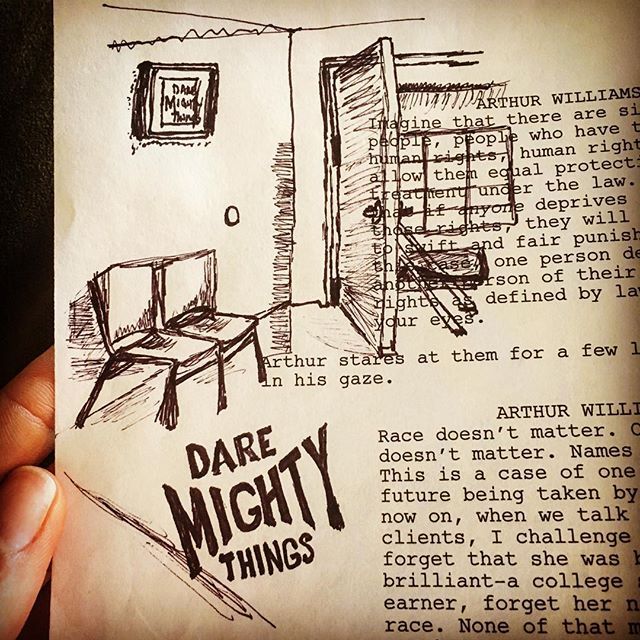 DARE
MIGHTY
THINGS
ARTHUR WILLIAMS
Imagine that there are
people, people who have
human rights, human right
allow them equal protecti
treatment under the law.
if anyone deprives
those rights, they will
to swift and fair punish
one person
another person of their
rights as defined by la
your eyes.
Arthur stares at them for a few
in his gaze.
ARTHUR WILLI
Race doesn't matter.
doesn't matter. Names
This is a case of one
future being taken by
now on, when we talk
clients, I challenge
forget that she was
brilliant-a college
earner, forget her
race. None of that
DARE
MIGHTY
THINGS